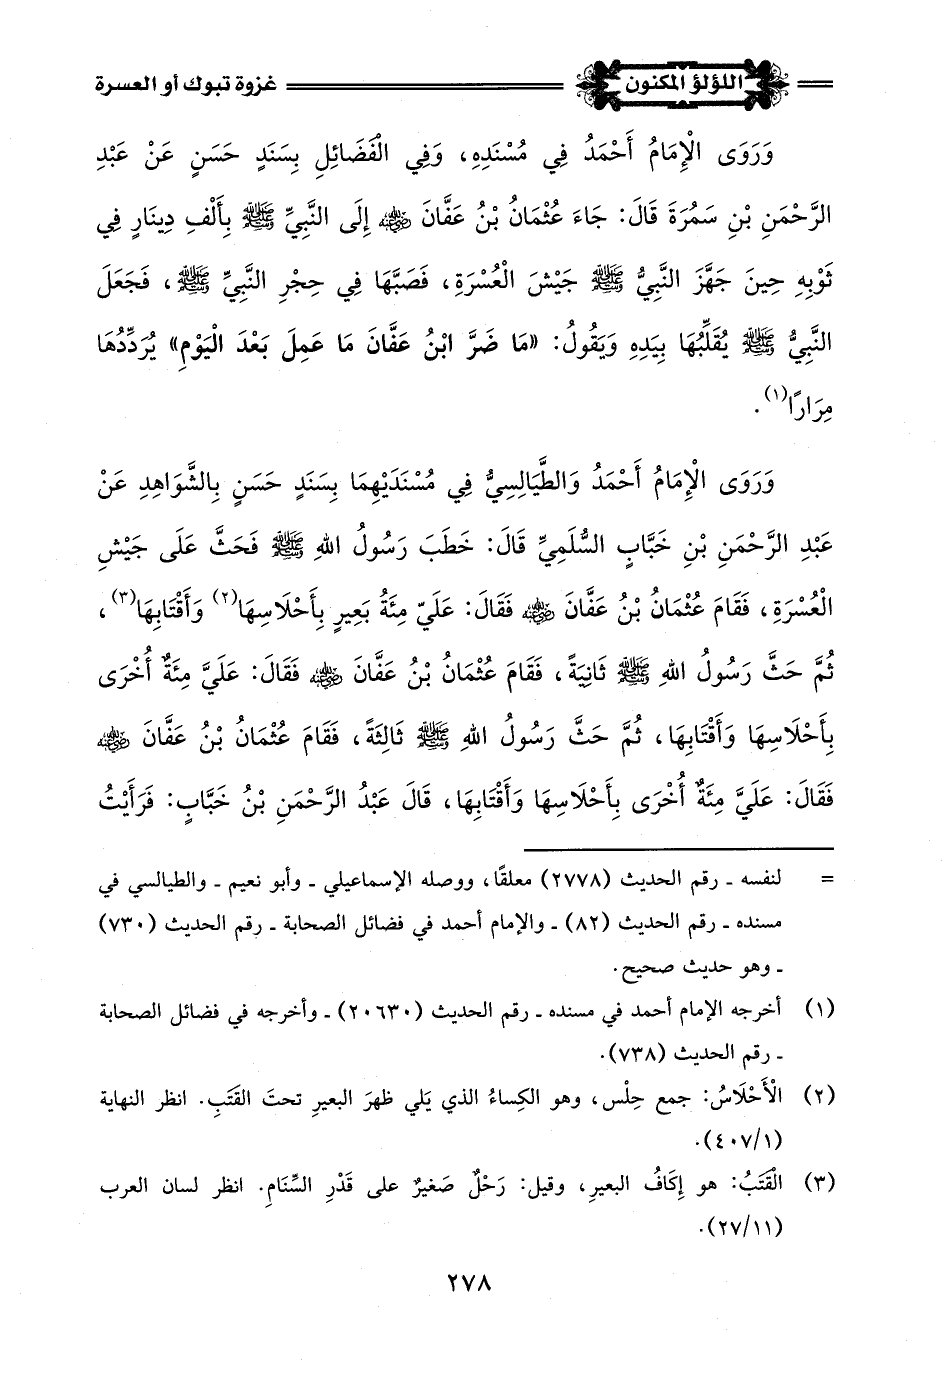 اللؤلؤ المكنون
غزوة تبوك أو العسرة
وَرَوَى الْإِمَامُ أَحْمَدُ فِي مُسْنَدِهِ، وَفِي الْفَضَائِلِ بِسَنَدٍ حَسَنٍ عَنْ عَبْدِ
الرَّحْمَنِ بْنِ سَمُرَةَ قَالَ: جَاءَ عُثْمَانُ بْنُ عَفَّانَ رضي الله عنه إِلَى النَّبِيِّ ﷺ بِأَلْفِ دِينَارٍ فِي
ثَوْبِهِ حِينَ جَهَّزَ النَّبِيُّ ﷺ جَيْشَ الْعُسْرَةِ، فَصَبَّهَا فِي حِجْرِ النَّبِيِّ ﷺ، فَجَعَلَ
النَّبِيُّ ﷺ يُقَلِّبُهَا بِيَدِهِ وَيَقُولُ: «مَا ضَرَّ ابْنُ عَفَّانَ مَا عَمِلَ بَعْدَ الْيَوْمِ» يُرَدِّدُهَا
مِرَارًا(١).
وَرَوَى الْإِمَامُ أَحْمَدُ وَالطَّيَالِسِيُّ فِي مُسْنَدَيْهِمَا بِسَنَدٍ حَسَنٍ بِالشَّوَاهِدِ عَنْ
عَبْدِ الرَّحْمَنِ بْنِ خَبَّابٍ السُّلَمِيِّ قَالَ: خَطَبَ رَسُولُ اللهِ ﷺ فَحَثَّ عَلَى جَيْشِ
الْعُسْرَةِ، فَقَامَ عُثْمَانُ بْنُ عَفَّانَ رضي الله عنه فَقَالَ: عَلَيّ مِئَةُ بَعِيرٍ بِأَحْلَاسِهَا(٢) وَأَقْتَابِهَا(٣)،
ثُمَّ حَثَّ رَسُولُ اللهِ ﷺ ثَانِيَةً، فَقَامَ عُثْمَانُ بْنُ عَفَّانَ رضي الله عنه فَقَالَ: عَلَيَّ مِئَةٌ أُخْرَى
بِأَحْلَاسِهَا وَأَقْتَابِهَا، ثُمَّ حَثَّ رَسُولُ اللهِ ﷺ ثَالِثَةً، فَقَامَ عُثْمَانُ بْنُ عَفَّانَ رضي الله عنه
فَقَالَ: عَلَيَّ مِئَةٌ أُخْرَى بِأَحْلَاسِهَا وَأَقْتَابِهَا، قَالَ عَبْدُ الرَّحْمَنِ بْنُ خَبَّابٍ: فَرَأَيْتُ
= لنفسه ـ رقم الحديث (٢٧٧٨) معلقًا، ووصله الإسماعيلي ـ وأبو نعيم ـ والطيالسي في
مسنده ـ رقم الحديث (٨٢) ـ والإمام أحمد في فضائل الصحابة ـ رقم الحديث (٧٣٠)
ـ وهو حديث صحيح.
(١) أخرجه الإمام أحمد في مسنده ـ رقم الحديث (٢٠٦٣٠) ـ وأخرجه في فضائل الصحابة
ـ رقم الحديث (٧٣٨).
(٢) الْأَحْلَاسُ: جمع حِلْس، وهو الكِساءُ الذي يَلي ظهرَ البعيرِ تحتَ القَتَبِ. انظر النهاية
(٤٠٧/١).
(٣) الْقَتَبُ: هو إِكَافُ البعيرِ، وقيل: رَحْلٌ صَغيرٌ على قَدْرِ السِّنَامِ. انظر لسان العرب
(٢٧/١١).
٢٧٨